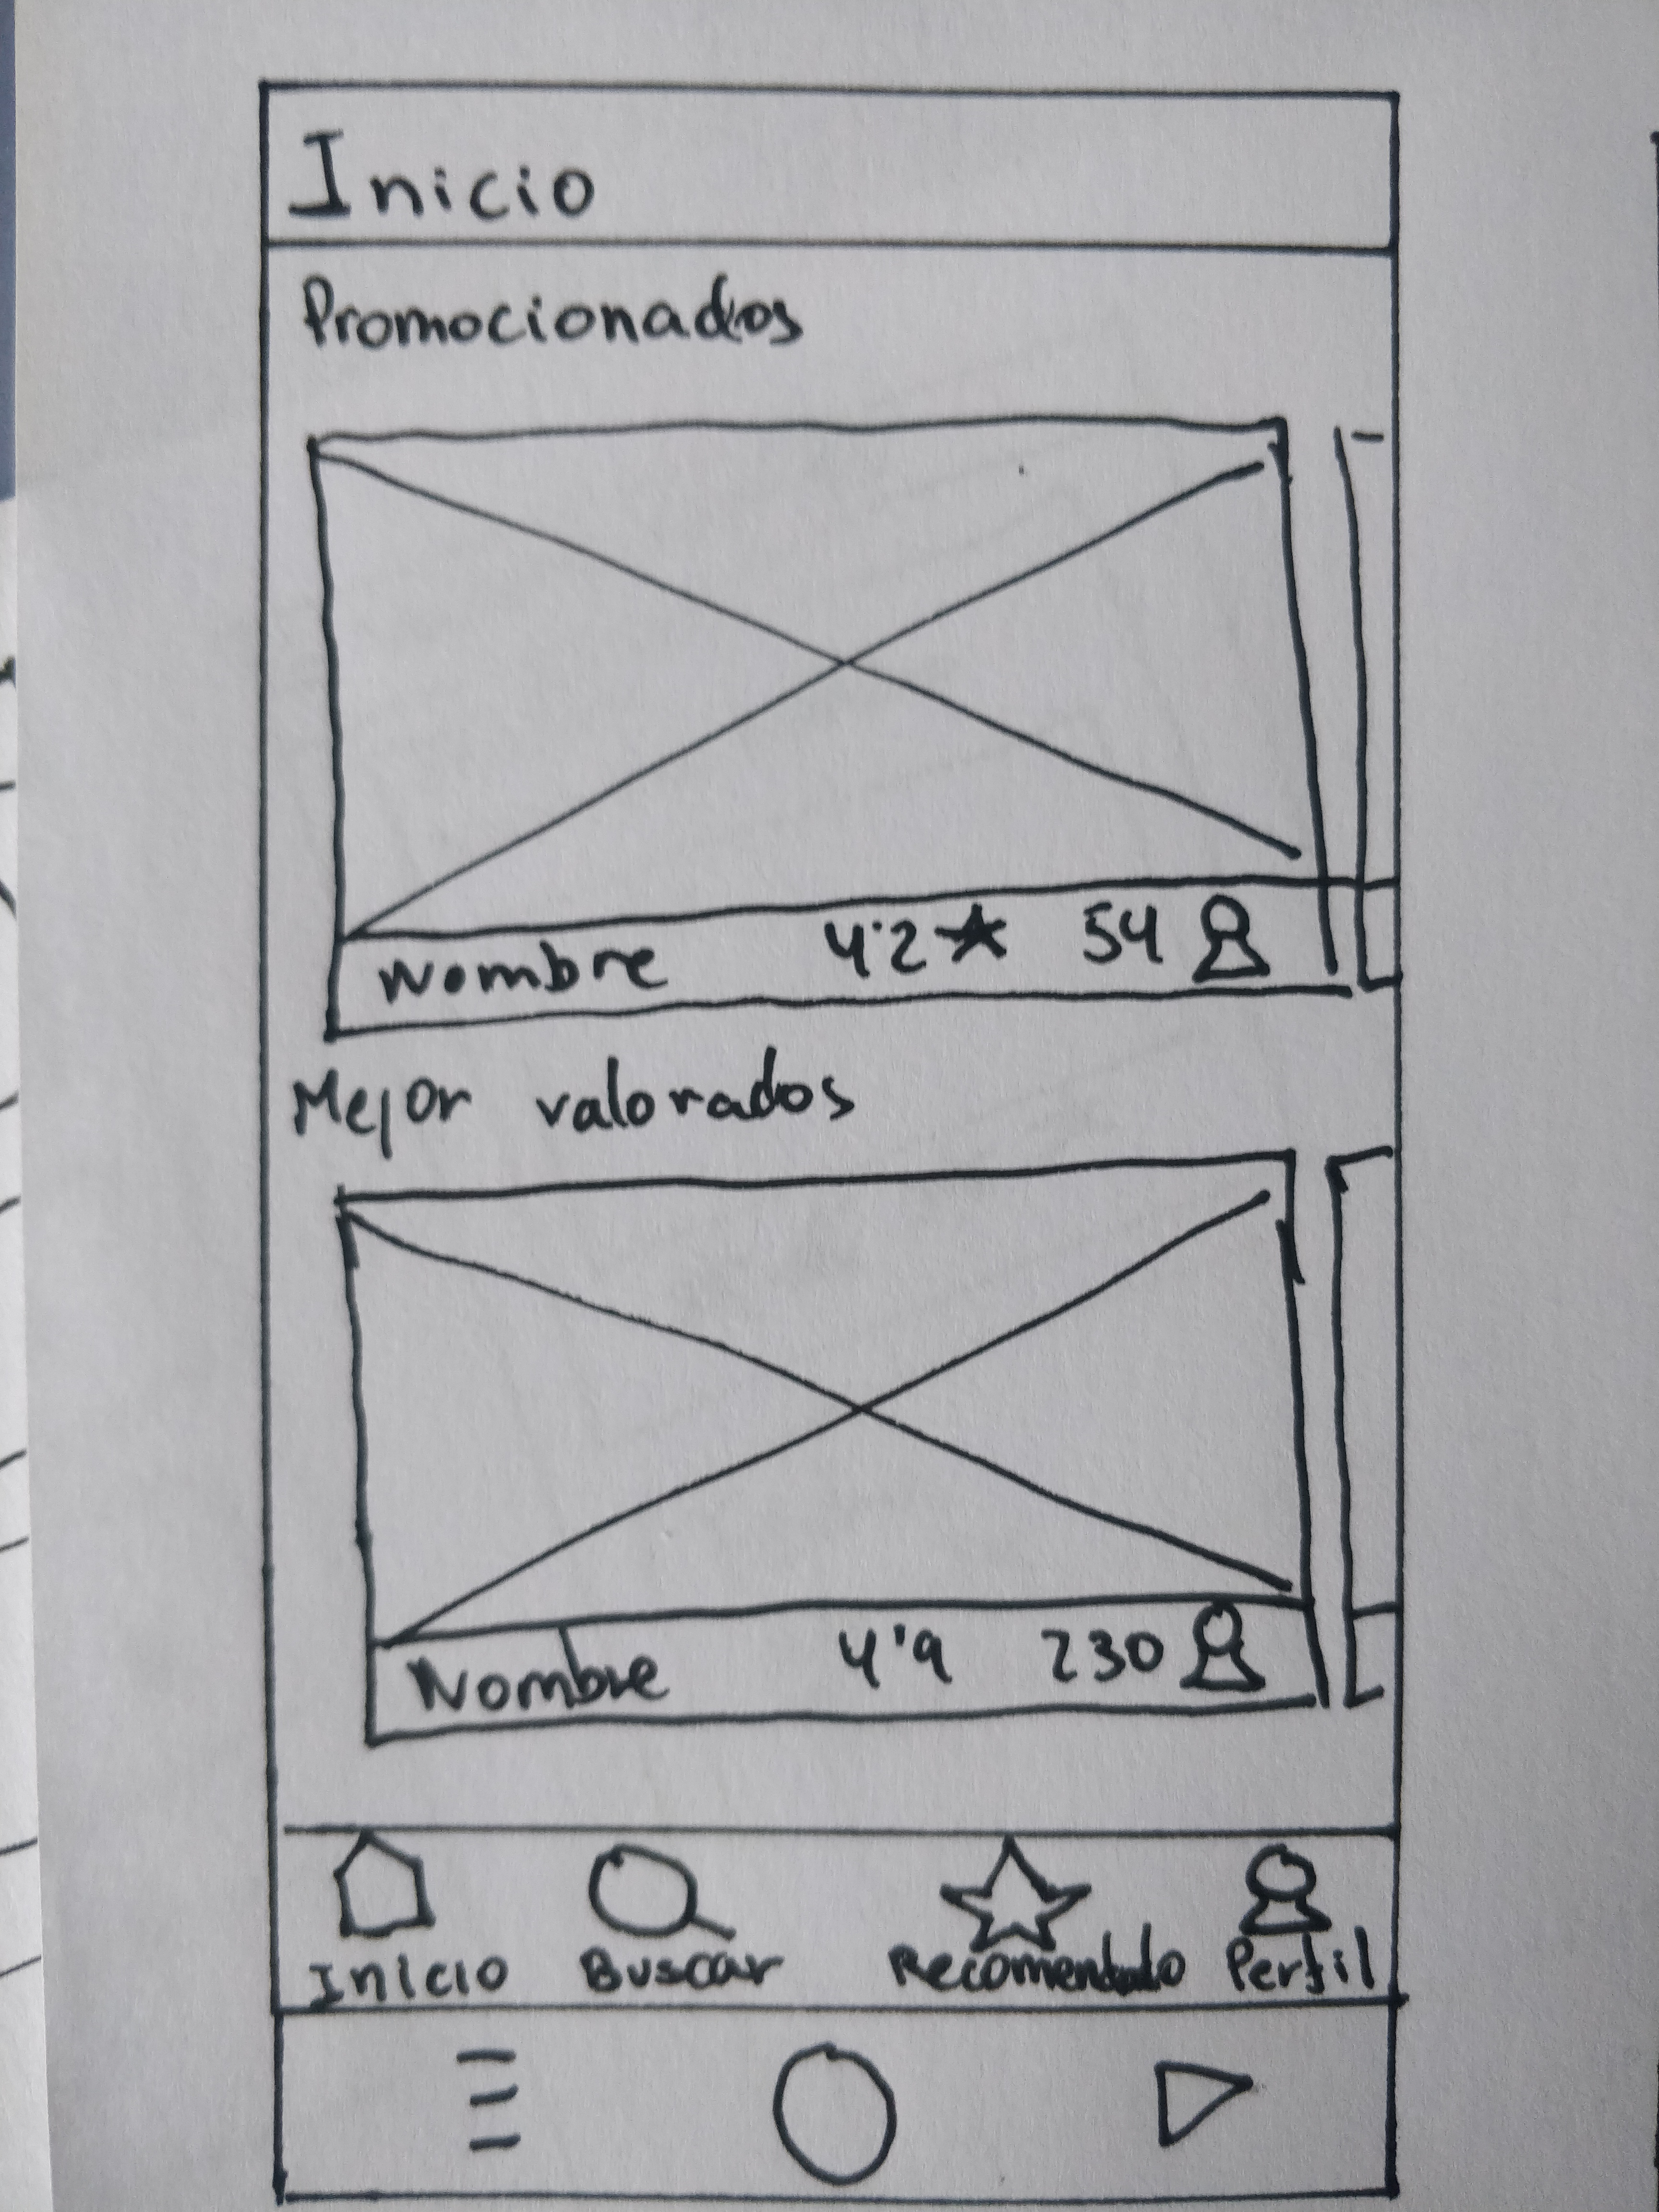 Inicio
Promocionados
Nombre 4'2★ 54
Mejor valorados
Nombre 4'9 230
Inicio Buscar Recomendado Perfil